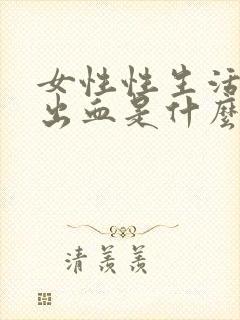 女性性生活
出血是什麼
清羨羨